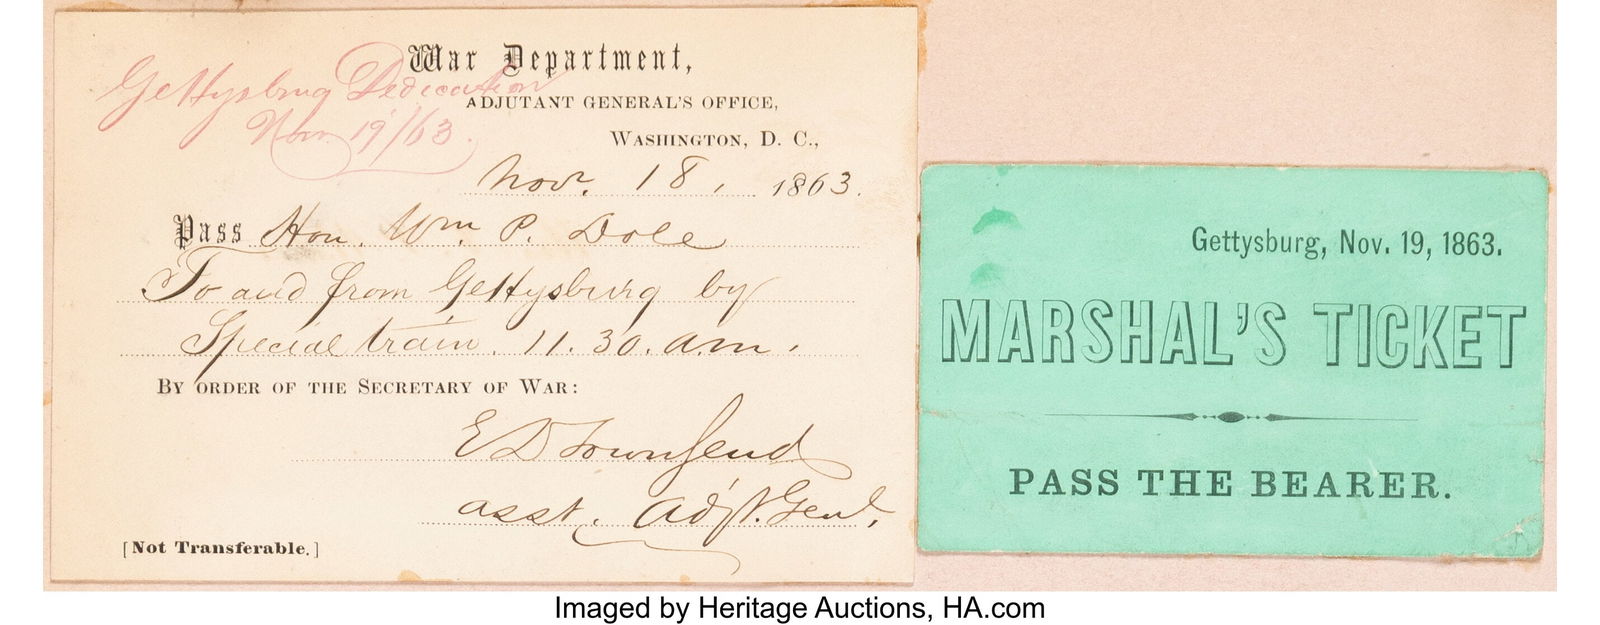 War Department,
Gettysburg Dedication
ADJUTANT GENERAL'S OFFICE,
Nov. 19/63.
WASHINGTON, D. C.,
Nov. 18, 1863.
Pass Hon. Wm. P. Dole
To and from Gettysburg by
Special train. 11.30. a.m.
BY ORDER OF THE SECRETARY OF WAR:
E D Townsend
asst. Adjt. Genl.
[Not Transferable.]
Gettysburg, Nov. 19, 1863.
MARSHAL'S TICKET
PASS THE BEARER.
Imaged by Heritage Auctions, HA.com